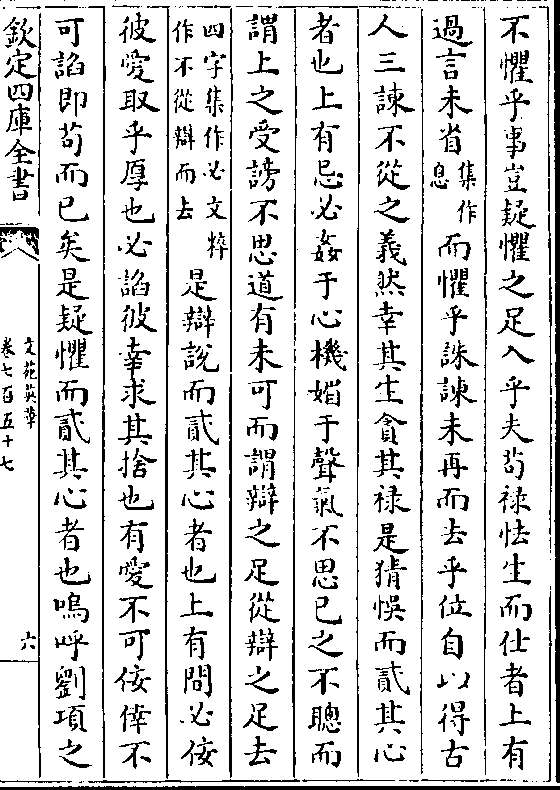 不懼乎事豈疑懼之足入乎夫茍祿怯生而仕者上有
過言未省集作息而懼乎誅諫未再而去乎位自以得古
人三諫不從之義然幸其生貪其祿是猜悞而貳其心
者也上有忌必姦于心機媚于聲氣不思已之不聰而
謂上之受謗不思道有未可而謂辯之足從辯之足去
四字集作必文粹作不從辯而去是辯說而貳其心者也上有問必佞
彼愛取乎厚也必諂彼幸求其捨也有愛不可佞倖不
可諂即茍而已矣是疑懼而貳其心者也嗚呼劉項之
欽定四庫全書
文苑英華
卷七百五十七
六